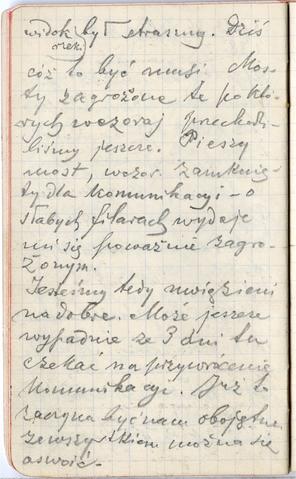 widok rzeki był straszny. Dziś
cóż to być musi. Mos-
ty zagrożone te po któ-
rych wczoraj przechodzi-
liśmy jeszcze. Pieszy
most, wczor. zamknię-
ty dla komunikacyi – o
słabych filarach wydaje
mi się poważnie zagro-
żonym.
Jesteśmy tedy uwięzieni
na dobre. Może jeszcze
wypadnie ze 3 dni tu
czekać na przywrócenie
komunikacyi. Już to
zaczyna być nam obojętne
ze wszystkiem można się
oswoić.